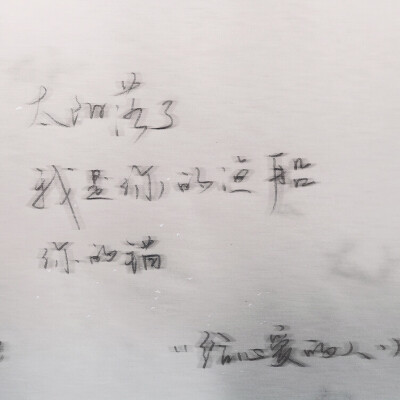 太阳落了
我是你的渔船
你的猫
给心爱的人